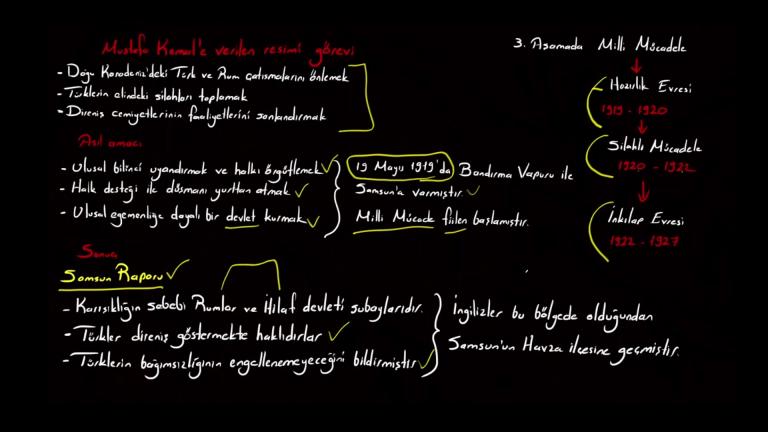 Mustafa Kemal'e verilen resmi görevi
- Doğu Karadeniz'deki Türk ve Rum çatışmalarını önlemek
- Türklerin elindeki silahları toplamak
- Direniş cemiyetlerinin faaliyetlerini sonlandırmak
Asıl amacı
- Ulusal bilinci uyandırmak ve halkı örgütlemek
- Halk desteği ile düşmanı yurttan atmak
- Ulusal egemenliğe dayalı bir devlet kurmak
19 Mayıs 1919'da Bandırma Vapuru ile
Samsun'a varmıştır.
Milli Mücade fiilen başlamıştır.
Sonuç
Samsun Raporu
- Karışıklığın sebebi Rumlar ve İtilaf devleti subaylarıdır.
- Türkler direniş göstermekte haklıdırlar
- Türklerin bağımsızlığının engellenemeyeceğini bildirmiştir
İngilizler bu bölgede olduğundan
Samsun'un Havza ilçesine geçmiştir.
3. Aşamada Milli Mücadele
Hazırlık Evresi
1919 - 1920
Silahlı Mücadele
1920 - 1922
İnkılap Evresi
1922 - 1927